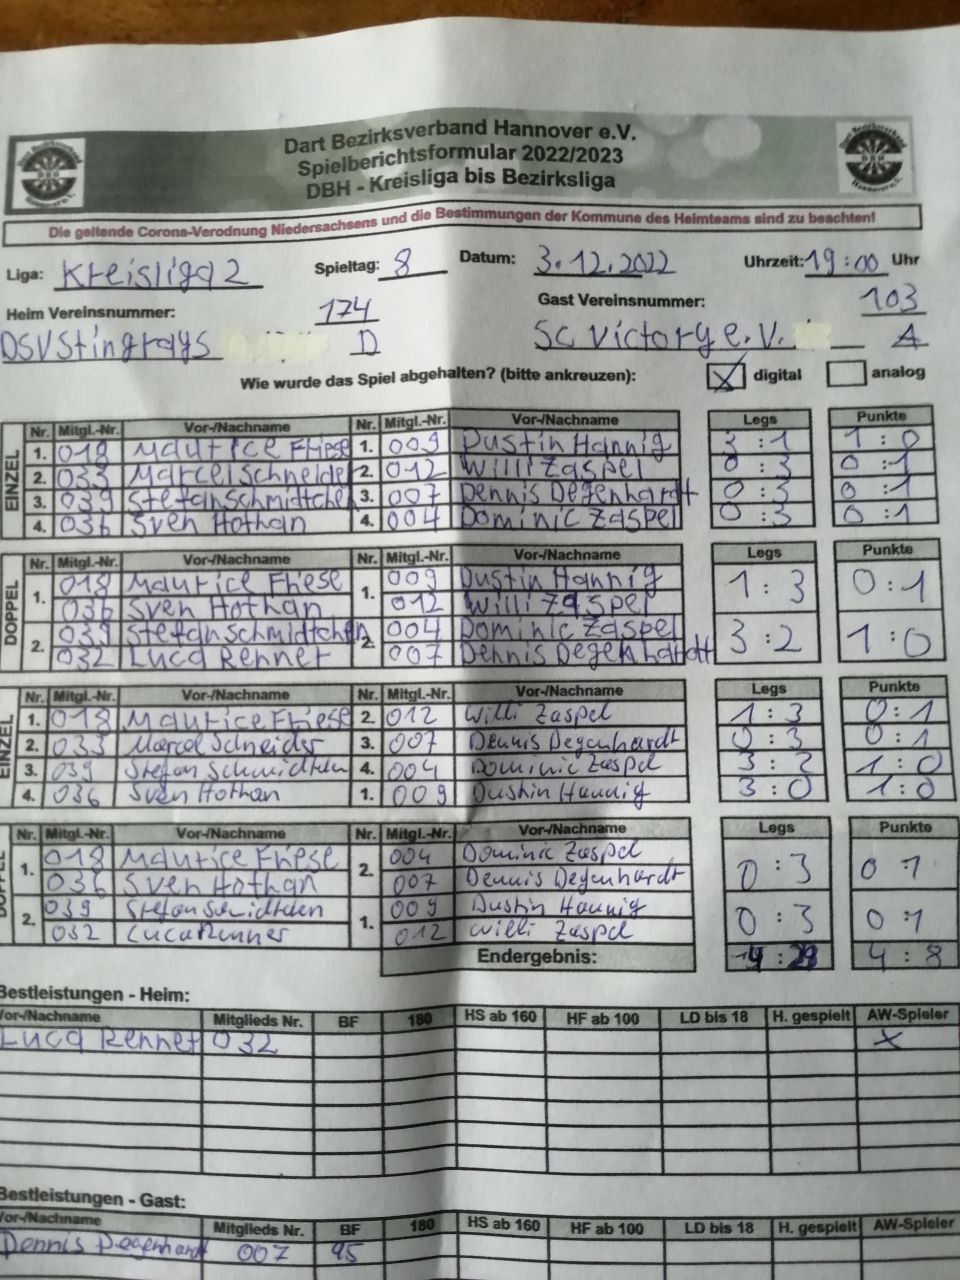 Dart Bezirksverband Hannover e.V.
Spielberichtsformular 2022/2023
DBH - Kreisliga bis Bezirksliga
Die geltende Corona-Verodnung Niedersachsens und die Bestimmungen der Kommune des Heimteams sind zu beachten!
Liga: Kreisliga 2 Spieltag: 8 Datum: 3.12.2022 Uhrzeit: 19:00 Uhr
Heim Vereinsnummer: 174 Gast Vereinsnummer: 103
DSV Stingrays D SC Victory e.V. A
Wie wurde das Spiel abgehalten? (bitte ankreuzen): X digital analog
EINZEL
Nr. Mitgl.-Nr. Vor-/Nachname Nr. Mitgl.-Nr. Vor-/Nachname Legs Punkte
1. 018 Maurice Friese 1. 009 Dustin Hannig 3:1 1:0
2. 033 Marcel Schneider 2. 012 Willi Zaspel 0:3 0:1
3. 039 Stefan Schmidtchen 3. 007 Dennis Degenhardt 0:3 0:1
4. 036 Sven Hothan 4. 004 Dominic Zaspel 0:3 0:1
DOPPEL
Nr. Mitgl.-Nr. Vor-/Nachname Nr. Mitgl.-Nr. Vor-/Nachname Legs Punkte
1. 018 Maurice Friese 1. 009 Dustin Hannig 1:3 0:1
036 Sven Hothan 012 Willi Zaspel
2. 039 Stefan Schmidtchen 2. 004 Dominic Zaspel 3:2 1:0
032 Luca Renner 007 Dennis Degenhardt
EINZEL
Nr. Mitgl.-Nr. Vor-/Nachname Nr. Mitgl.-Nr. Vor-/Nachname Legs Punkte
1. 018 Maurice Friese 2. 012 Willi Zaspel 1:3 0:1
2. 033 Marcel Schneider 3. 007 Dennis Degenhardt 0:3 0:1
3. 039 Stefan Schmidtchen 4. 004 Dominic Zaspel 3:2 1:0
4. 036 Sven Hothan 1. 009 Dustin Hannig 3:0 1:0
DOPPEL
Nr. Mitgl.-Nr. Vor-/Nachname Nr. Mitgl.-Nr. Vor-/Nachname Legs Punkte
1. 018 Maurice Friese 2. 004 Dominic Zaspel 0:3 0:1
036 Sven Hothan 007 Dennis Degenhardt
2. 039 1. 009 Dustin Hannig 0:3 0:1
032 Luca Renner 012 Willi Zaspel
Endergebnis: 4:8
Bestleistungen - Heim:
Vor-/Nachname Mitglieds Nr. BF 180 HS ab 160 HF ab 100 LD bis 18 H. gespielt AW-Spieler
Luca Renner 032 X
Bestleistungen - Gast:
Vor-/Nachname Mitglieds Nr. BF 180 HS ab 160 HF ab 100 LD bis 18 H. gespielt AW-Spieler
Dennis Degenhardt 007 95